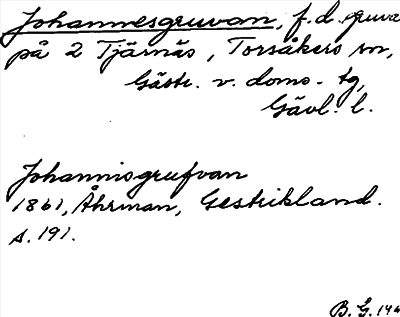 Johannesgruvan, f. d. gruva
på 2 Tjärnäs, Torsåkers sn,
Gästr. v. doms. tg,
Gävl. l.
Johannisgrufvan
1861, Åhrman, Gestrikland.
s. 191.
B. G.